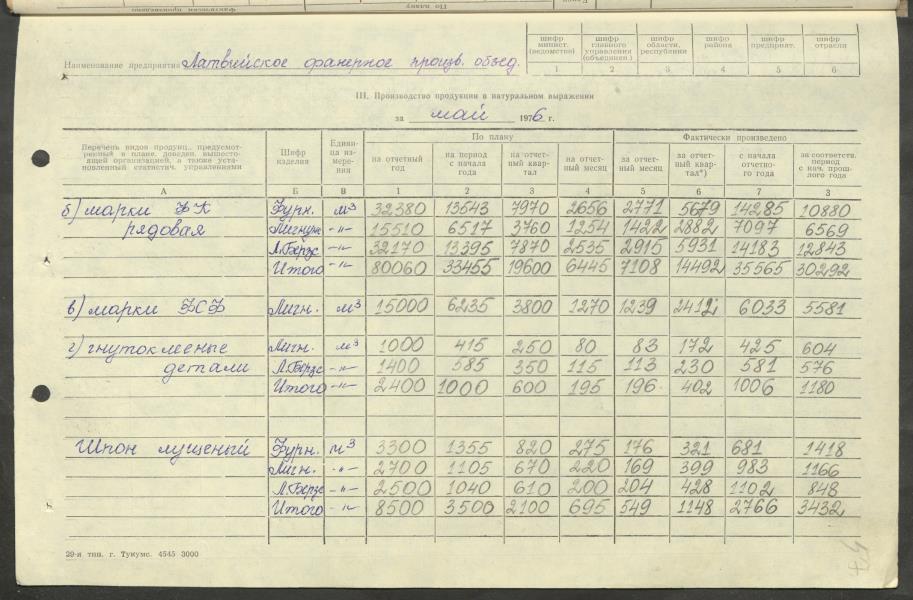 шифр минист. (ведомства) шифр главного управления (объединен.) шифр области, республики шифр района шифр предприят. шифр отрасли
1 2 3 4 5 6
Наименование предприятия Латвийское фанерное произв. объед.
III. Производство продукции в натуральном выражении
за май 1976 г.
Перечень видов продукц., предусмотренный в плане, доведен. вышестоящей организацией, а также установленный статистич. управлениями Шифр изделия Единица измерения По плану Фактически произведено
на отчетный год на период с начала года на отчетный квартал на отчетный месяц за отчетный месяц за отчетный квартал*) с начала отчетного года за соответств. период с нач. прошлого года
А Б В 1 2 3 4 5 6 7 8
б) марки ФК Фурн. м3 32380 13543 7970 2656 2771 5679 14285 10880
рядовая Лигнум -"- 15510 6517 3760 1254 1422 2882 7097 6569
Л.Берзс -"- 32170 13395 7870 2535 2915 5931 14183 12843
Итого -"- 80060 33455 19600 6445 7108 14492 35565 30292
в) марки ФСФ Лигн. м3 15000 6235 3800 1270 1239 2412 6033 5581
г) гнутоклееные Лигн. м3 1000 415 250 80 83 172 425 604
детали Л.Берзс -"- 1400 585 350 115 113 230 581 576
Итого -"- 2400 1000 600 195 196 402 1006 1180
Шпон лущеный Фурн. м3 3300 1355 820 275 176 321 681 1418
Лигн. -"- 2700 1105 670 220 169 399 983 1166
Л.Берзс -"- 2500 1040 610 200 204 428 1102 848
Итого -"- 8500 3500 2100 695 549 1148 2766 3432
29-я тип. г. Тукумс. 4545 3000